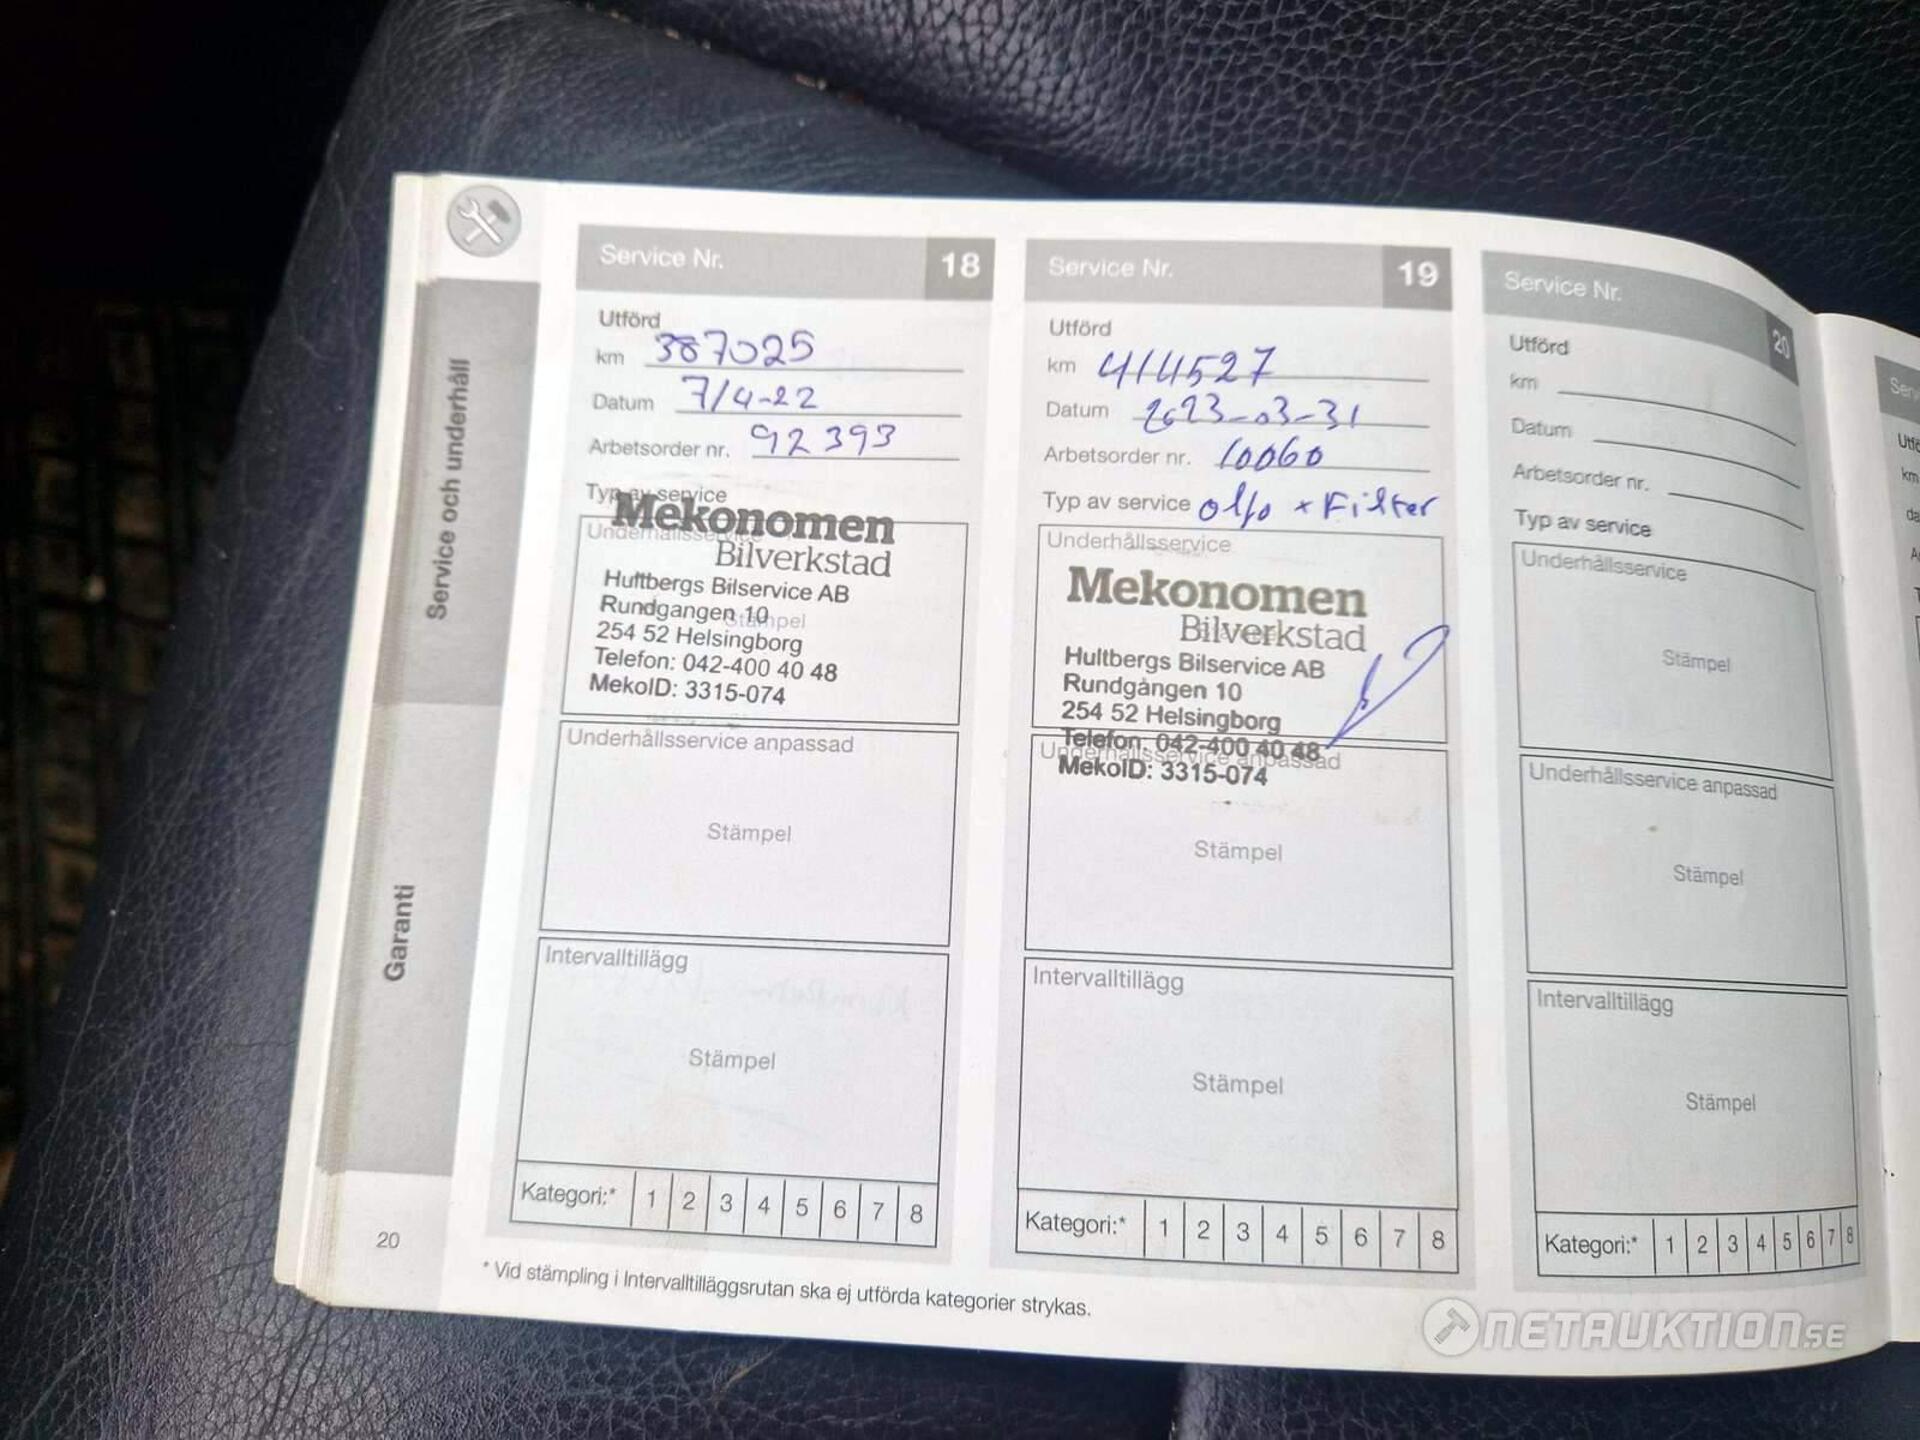 Service och underhåll
Garanti
20
Service Nr. 18
Utförd
km 387025
Datum 7/4-22
Arbetsorder nr. 92393
Typ av service
Underhållsservice
Mekonomen
Bilverkstad
Hultbergs Bilservice AB
Rundgången 10
254 52 Helsingborg
Telefon: 042-400 40 48
MekoID: 3315-074
Stämpel
Underhållsservice anpassad
Stämpel
Intervalltillägg
Stämpel
Kategori:* 1 2 3 4 5 6 7 8
Service Nr. 19
Utförd
km 414527
Datum 2023-03-31
Arbetsorder nr. 10060
Typ av service olja + Filter
Underhållsservice
Mekonomen
Bilverkstad
Hultbergs Bilservice AB
Rundgången 10
254 52 Helsingborg
Telefon: 042-400 40 48
MekoID: 3315-074
Underhållsservice anpassad
Stämpel
Intervalltillägg
Stämpel
Kategori:* 1 2 3 4 5 6 7 8
Service Nr. 20
Utförd
km
Datum
Arbetsorder nr.
Typ av service
Underhållsservice
Stämpel
Underhållsservice anpassad
Stämpel
Intervalltillägg
Stämpel
Kategori:* 1 2 3 4 5 6 7 8
* Vid stämpling i Intervalltilläggsrutan ska ej utförda kategorier strykas.
km
NETAUKTION.SE